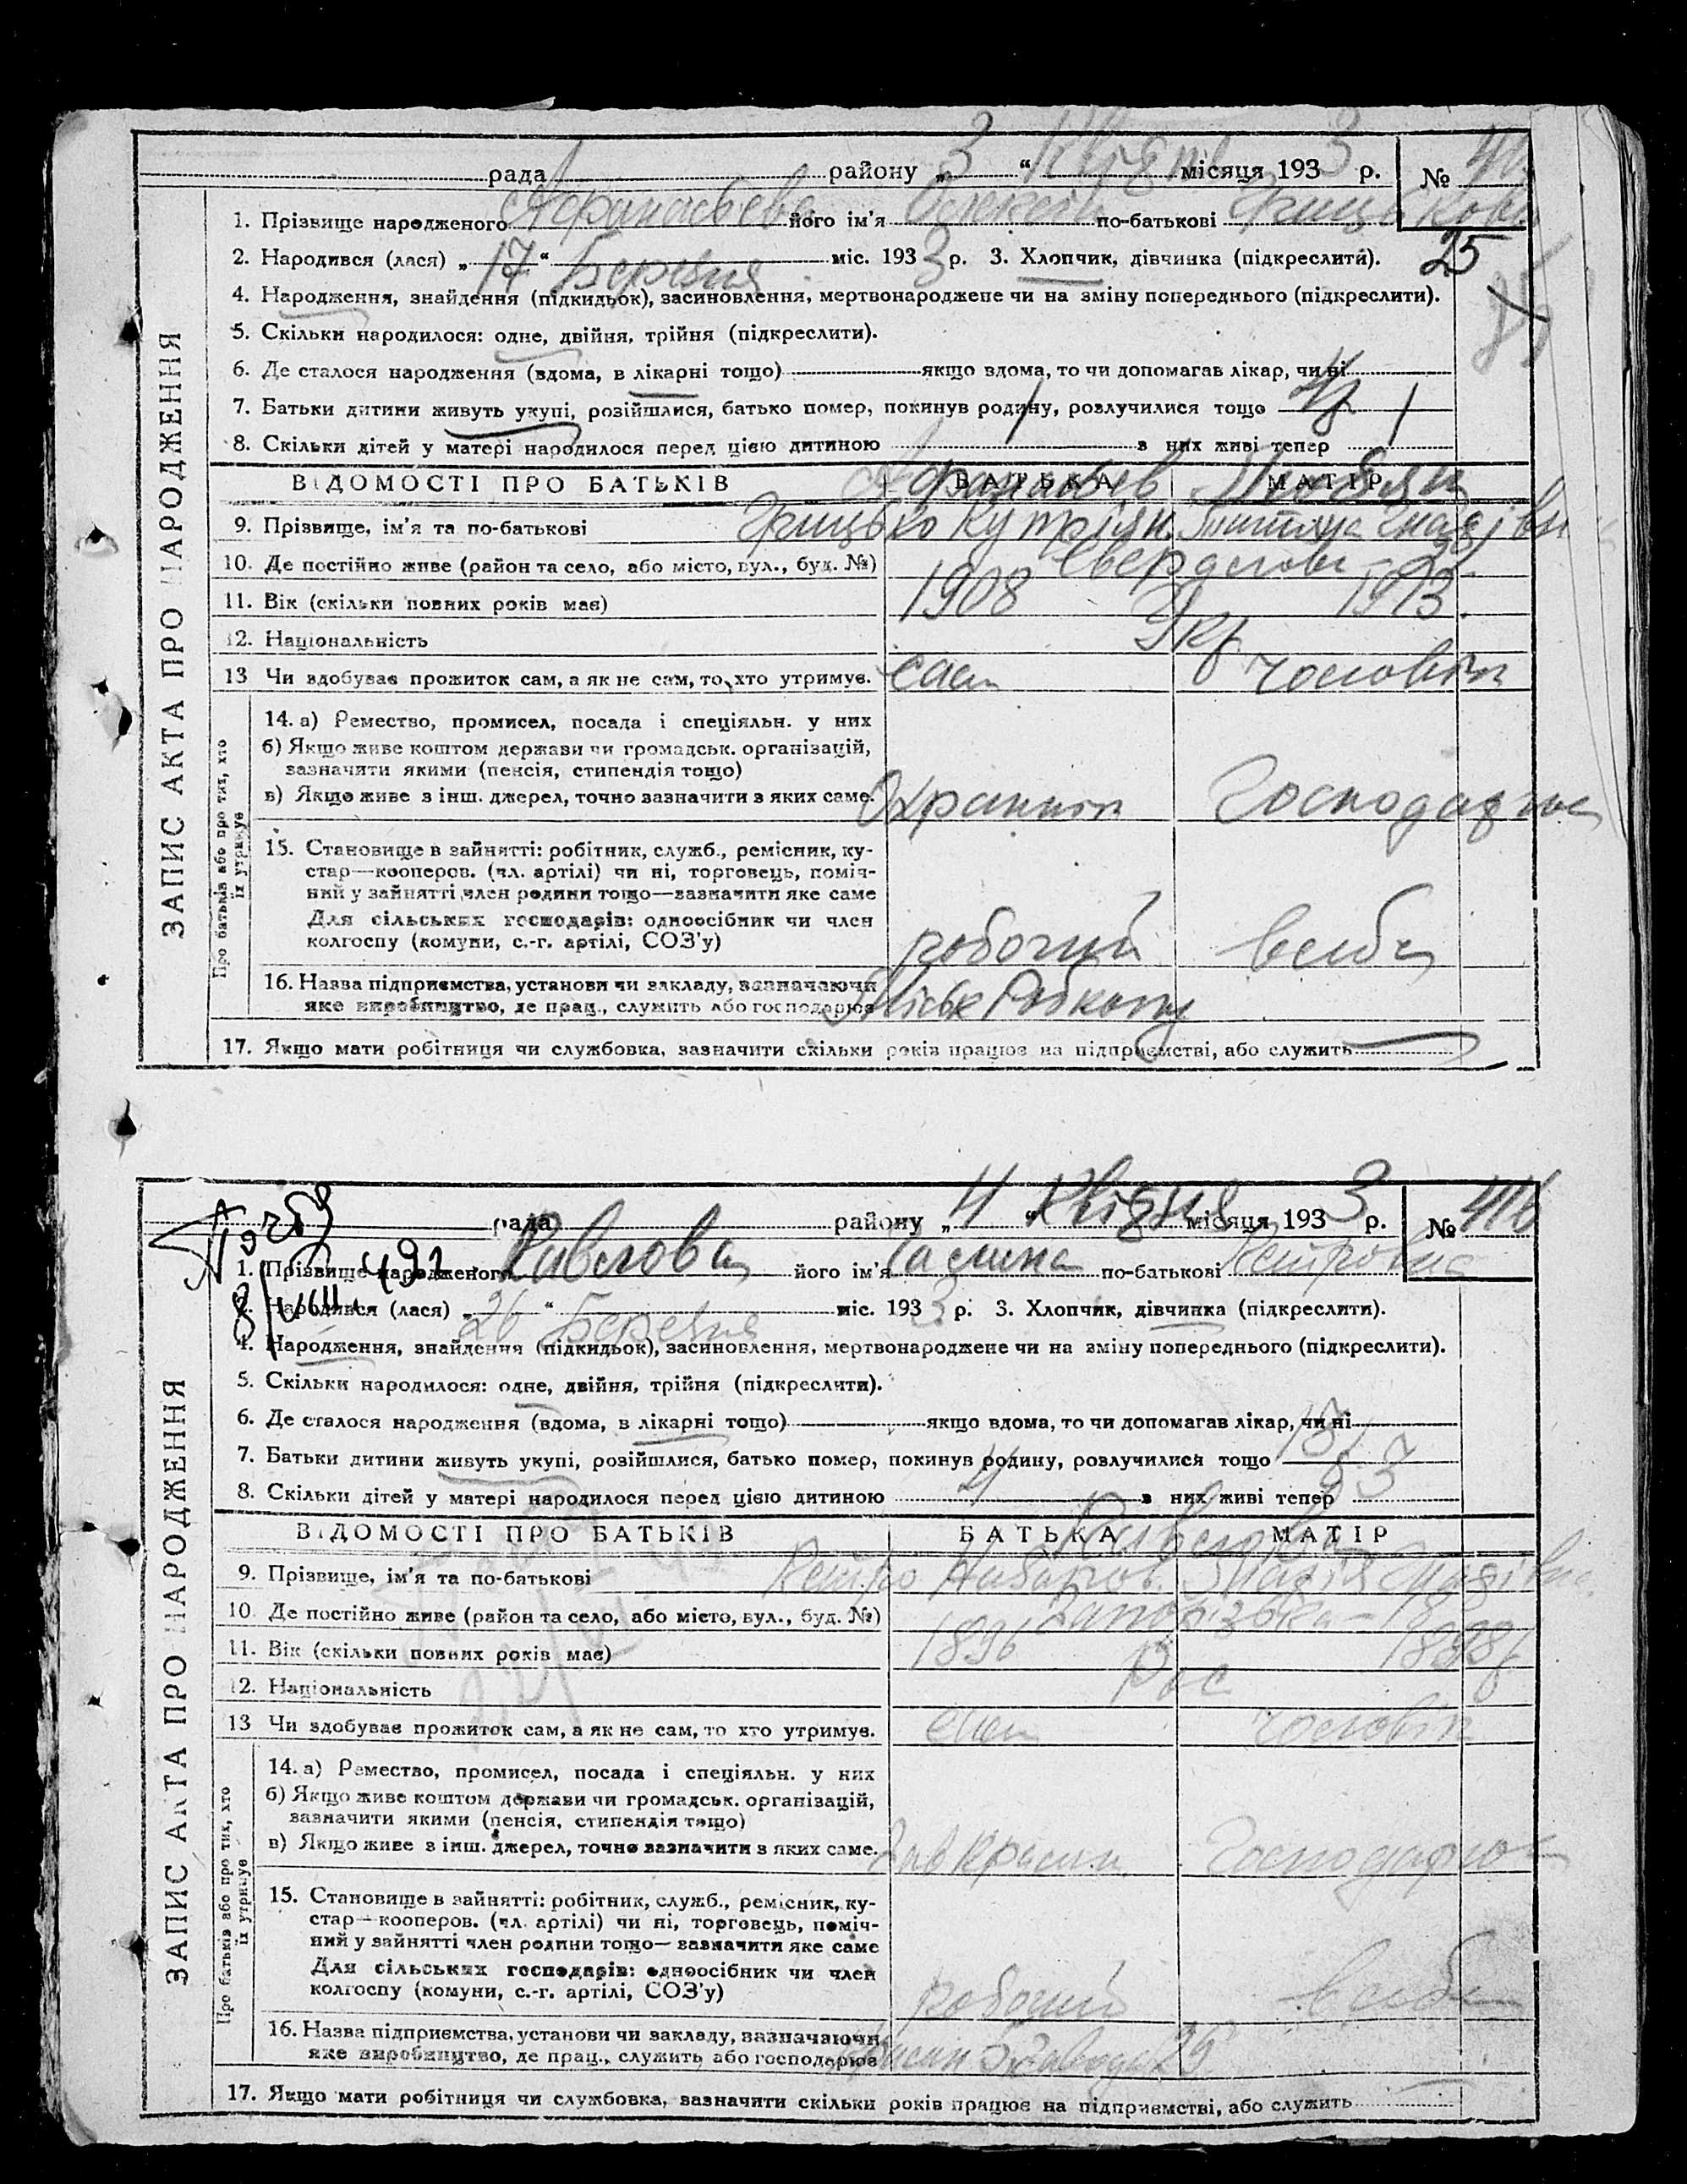 ЗАПИС АКТА ПРО НАРОДЖЕННЯ
рада району „3“ Квітня місяця 1933 р. №
1. Прізвище народженого його ім'я по-батькові
25
2. Народився (лася) „17“ Березня міс. 1933 р. 3. Хлопчик, дівчинка (підкреслити).
4. Народження, знайдення (підкидьок), засиновлення, мертвонароджене чи на зміну попереднього (підкреслити).
5. Скільки народилося: одне, двійня, трійня (підкреслити).
6. Де сталося народження (вдома, в лікарні тощо) якщо вдома, то чи допомагав лікар, чи ні
7. Батьки дитини живуть укупі, розійшлися, батько помер, покинув родину, розлучилися тощо
8. Скільки дітей у матері народилося перед цією дитиною 1 з них живі тепер 1
ВІДОМОСТІ ПРО БАТЬКІВ БАТЬКА МАТІР
9. Прізвище, ім'я та по-батькові Грицько
10. Де постійно живе (район та село, або місто, вул., буд. №)
11. Вік (скільки повних років має) 1908 1913
12. Національність Укр
13 Чи здобуває прожиток сам, а як не сам, то хто утримує. сам чоловік
Про батьків або про тих, хто їх утримує
14. а) Ремество, промисел, посада і спеціяльн. у них
б) Якщо живе коштом держави чи громадськ. організацій,
зазначити якими (пенсія, стипендія тощо)
в) Якщо живе з інш. джерел, точно зазначити з яких саме. Охранник
15. Становище в зайнятті: робітник, служб., ремісник, ку-
стар—кооперов. (чл. артілі) чи ні, торговець, поміч-
ний у зайнятті член родини тощо—зазначити яке саме
Для сільських господарів: одноосібник чи член
колгоспу (комуни, с.-г. артілі, СОЗ'у) робочий
16. Назва підприємства, установи чи закладу, зазначаючи
яке виробництво, де прац., служить або господарює
17. Якщо мати робітниця чи службовка, зазначити скільки років працює на підприємстві, або служить
ЗАПИС АКТА ПРО НАРОДЖЕННЯ
рада району „4“ Квітня місяця 1933 р. № 416
1. Прізвище народженого Павлова його ім'я Галина по-батькові Петровна
2. Народився (лася) „26“ Березня міс. 1933 р. 3. Хлопчик, дівчинка (підкреслити).
4. Народження, знайдення (підкидьок), засиновлення, мертвонароджене чи на зміну попереднього (підкреслити).
5. Скільки народилося: одне, двійня, трійня (підкреслити).
6. Де сталося народження (вдома, в лікарні тощо) якщо вдома, то чи допомагав лікар, чи ні
7. Батьки дитини живуть укупі, розійшлися, батько помер, покинув родину, розлучилися тощо
8. Скільки дітей у матері народилося перед цією дитиною 4 з них живі тепер 3
ВІДОМОСТІ ПРО БАТЬКІВ БАТЬКА МАТІР
9. Прізвище, ім'я та по-батькові Петро Марія
10. Де постійно живе (район та село, або місто, вул., буд. №)
11. Вік (скільки повних років має) 1896 1898
12. Національність Рос
13 Чи здобуває прожиток сам, а як не сам, то хто утримує. сам чоловік
Про батьків або про тих, хто їх утримує
14. а) Ремество, промисел, посада і спеціяльн. у них
б) Якщо живе коштом держави чи громадськ. організацій,
зазначити якими (пенсія, стипендія тощо)
в) Якщо живе з інш. джерел, точно зазначити з яких саме.
15. Становище в зайнятті: робітник, служб., ремісник, ку-
стар—кооперов. (чл. артілі) чи ні, торговець, поміч-
ний у зайнятті член родини тощо—зазначити яке саме
Для сільських господарів: одноосібник чи член
колгоспу (комуни, с.-г. артілі, СОЗ'у) робочий
16. Назва підприємства, установи чи закладу, зазначаючи
яке виробництво, де прац., служить або господарює
17. Якщо мати робітниця чи службовка, зазначити скільки років працює на підприємстві, або служить